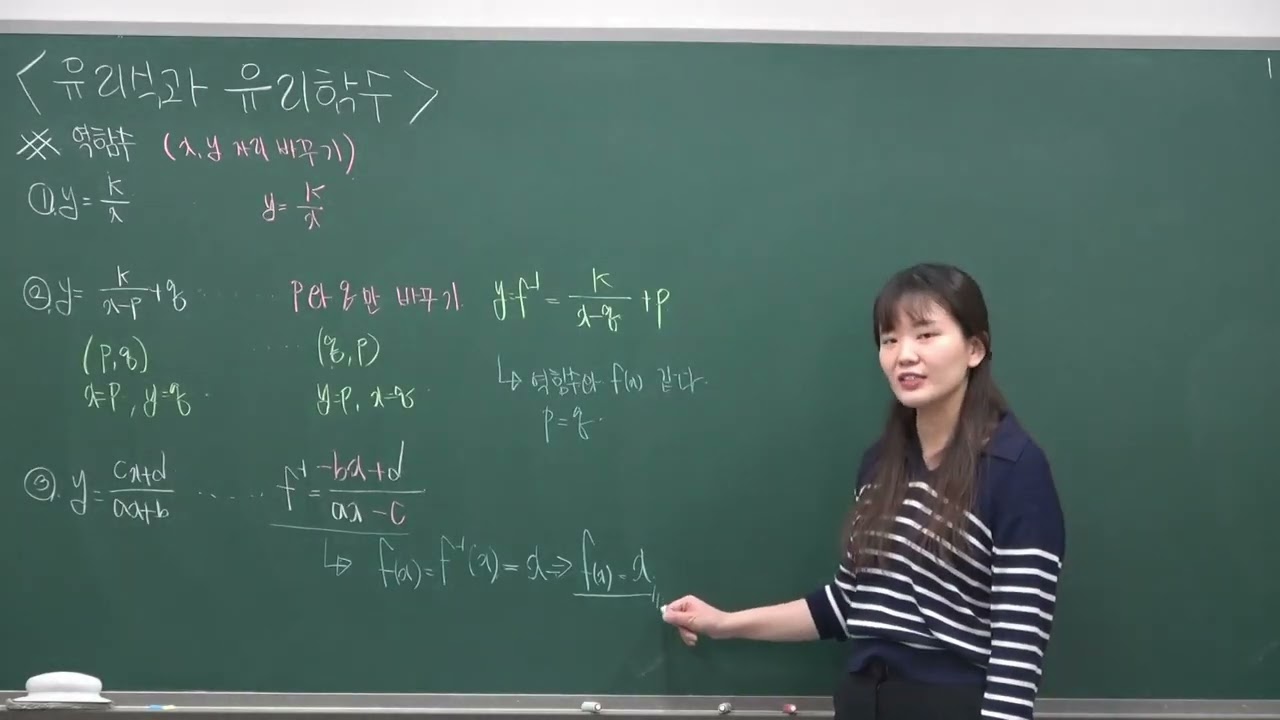 <유리식과 유리함수>
※ 역함수 (x, y 자리 바꾸기)
①. y = k/x y = k/x
②. y = k/(x-p) + q ········ p와 q만 바꾸기. y = f⁻¹ = k/(x-q) + p
(p, q) ····· (q, p)
x=p, y=q. y=p, x=q.
↳ 역함수와 f(x) 같다.
p = q.
③. y = (cx+d)/(ax+b) ······ f⁻¹ = (-bx+d)/(ax-c)
↳ f(x) = f⁻¹(x) = x ⇒ f(x) = x.